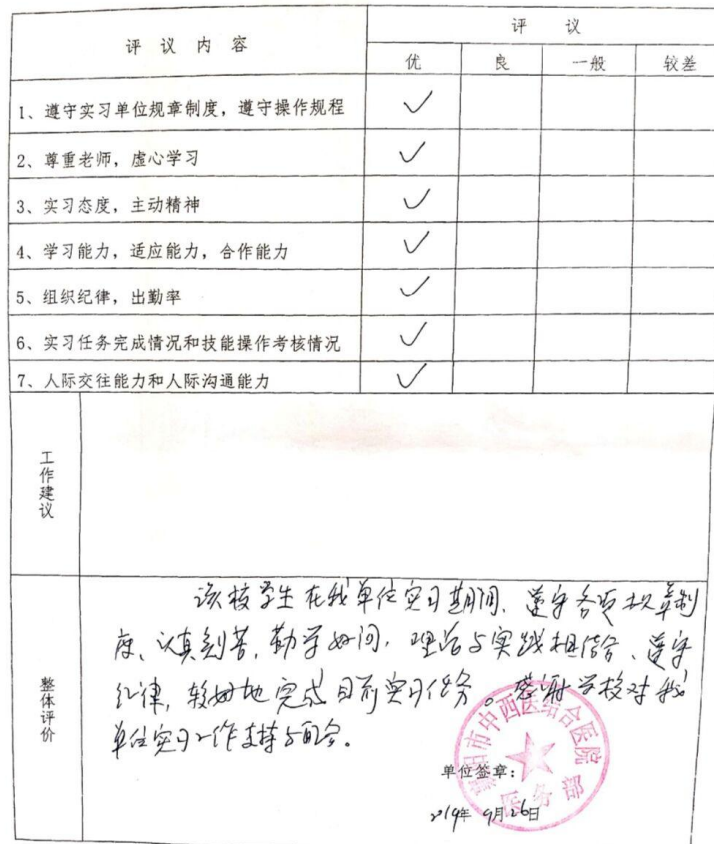 评议内容 评议
优 良 一般 较差
1、遵守实习单位规章制度，遵守操作规程 ✓
2、尊重老师，虚心学习 ✓
3、实习态度，主动精神 ✓
4、学习能力，适应能力，合作能力 ✓
5、组织纪律，出勤率 ✓
6、实习任务完成情况和技能操作考核情况 ✓
7、人际交往能力和人际沟通能力 ✓
工作建议
整体评价
该校学生在我单位实习期间、遵守各项规章制
度、认真刻苦，勤学好问，理论与实践相结合、遵守
纪律，较好地完成目前实习任务。感谢学校对我
单位实习工作支持与配合。
市中西医结合医院
医务部
单位签章：
2019年9月26日